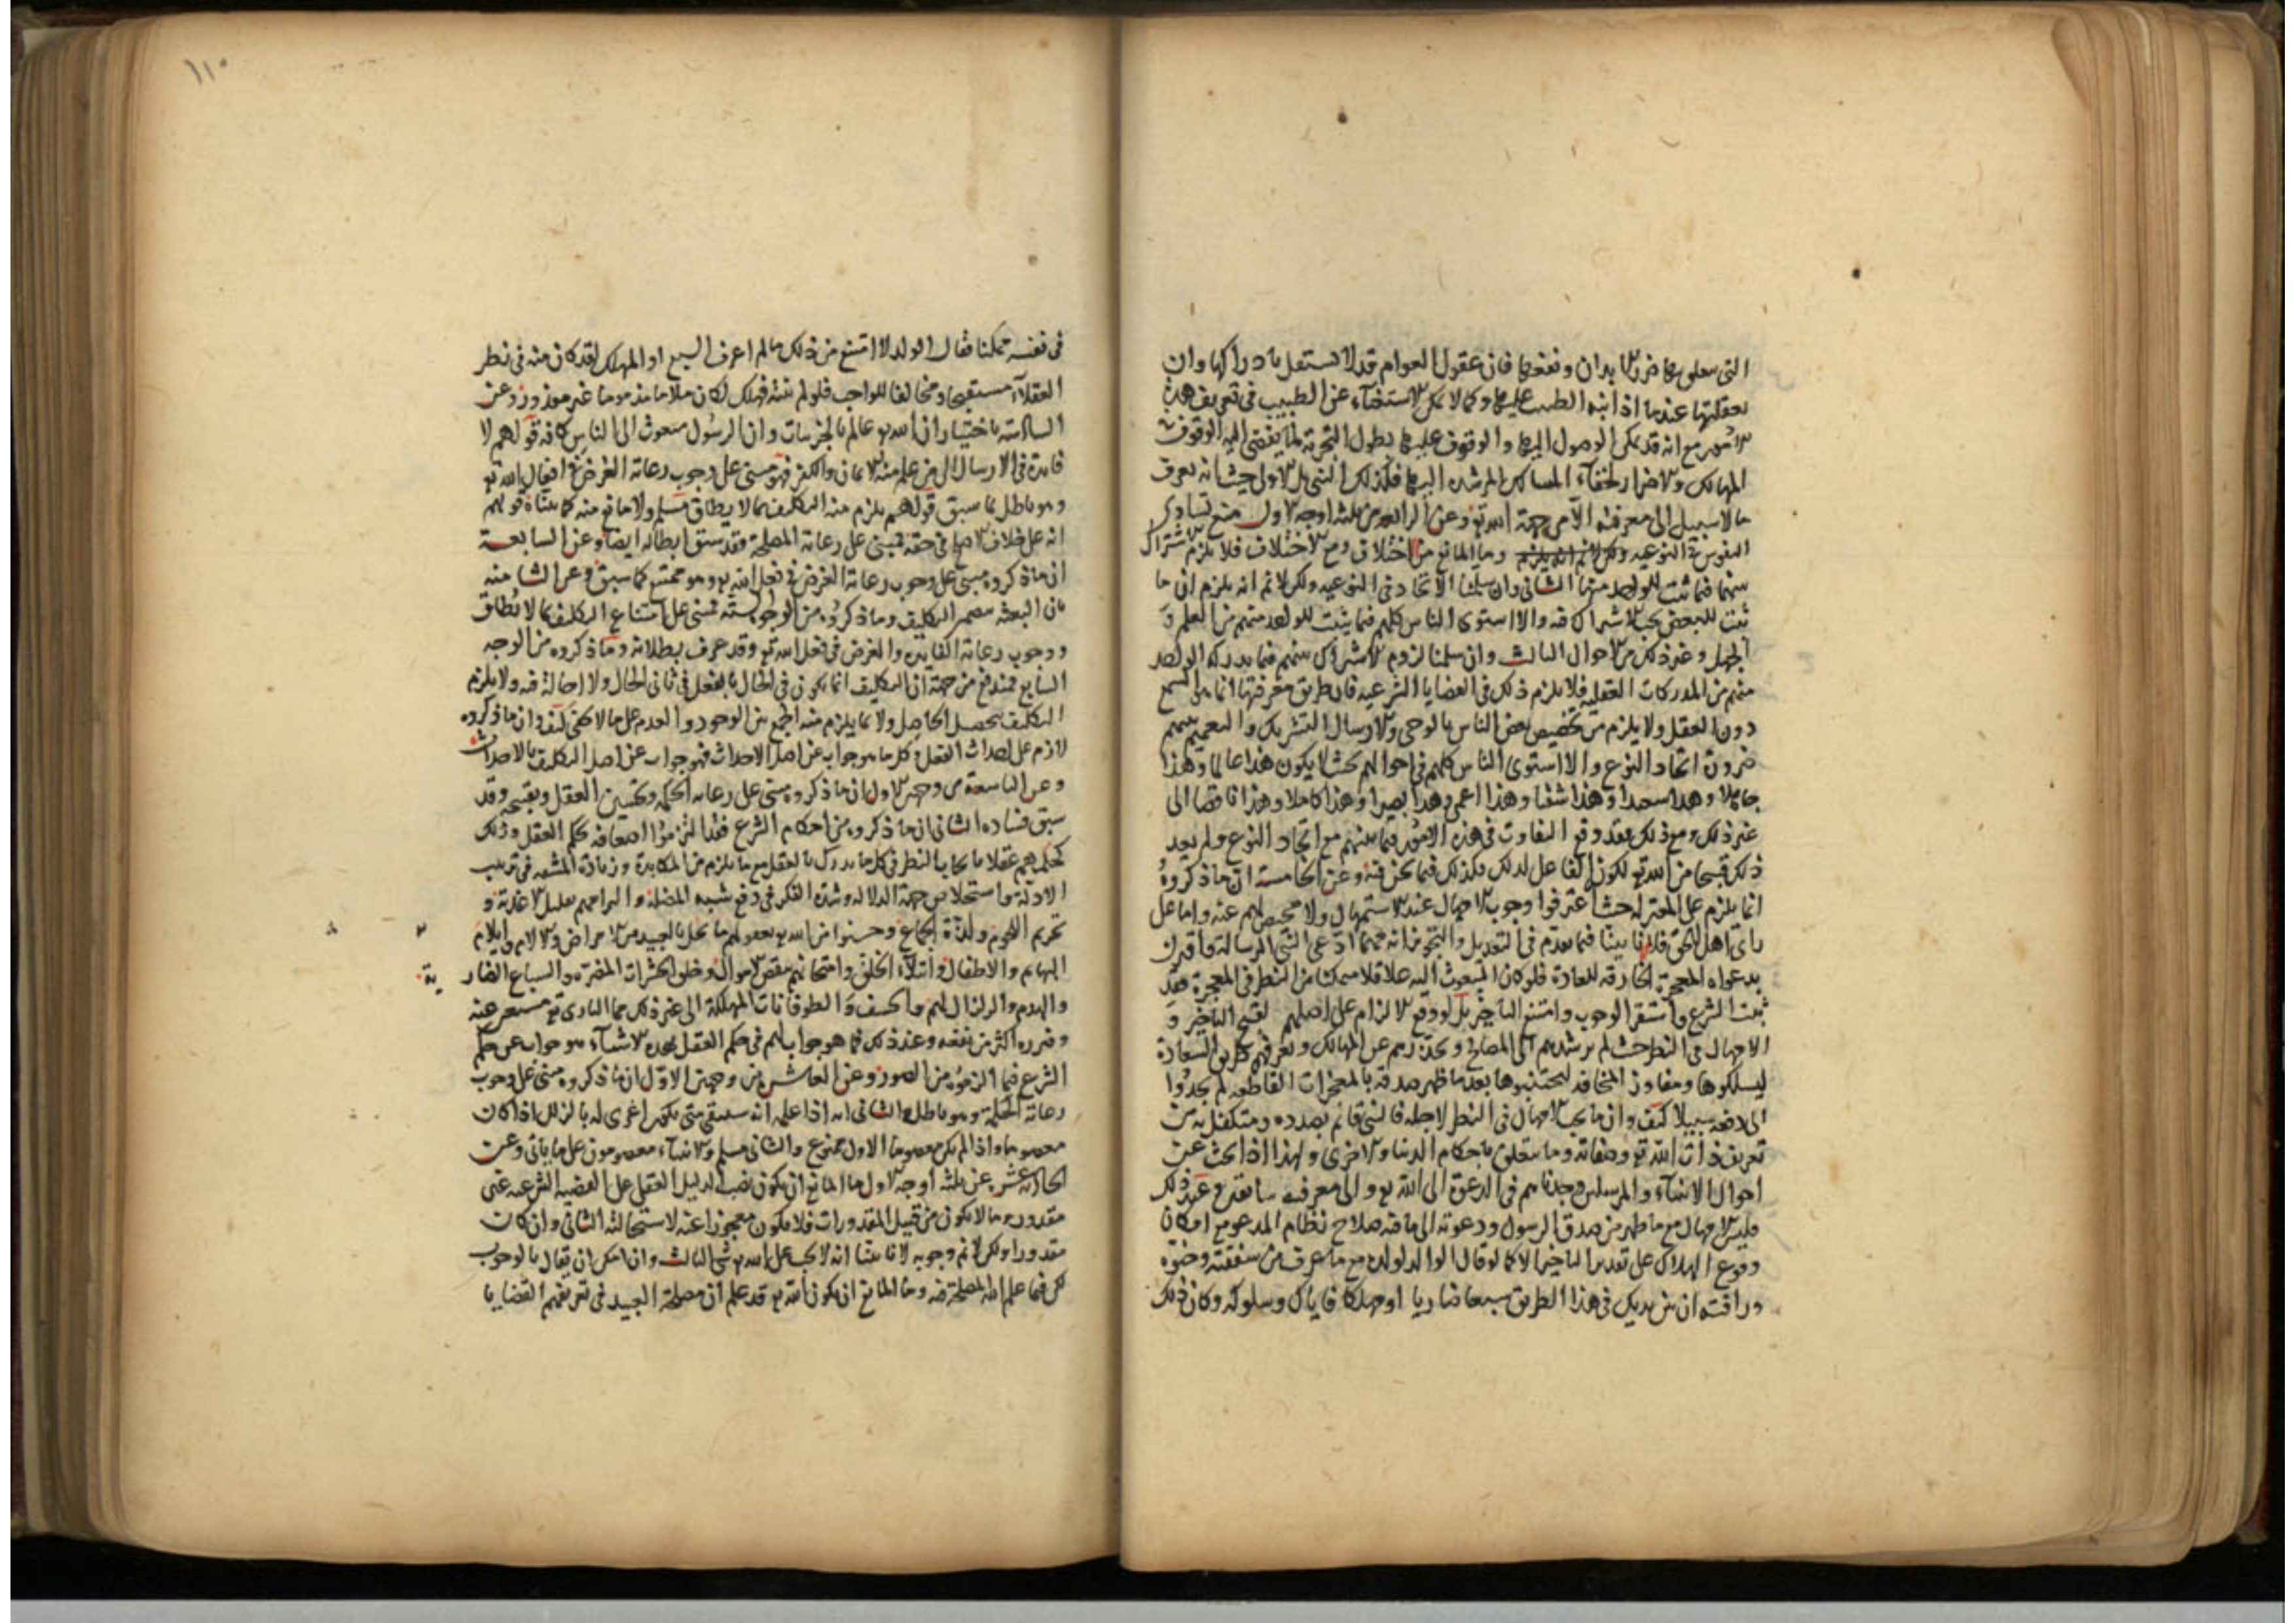 التى يتعلق بها ضرر الابدان ونفعها فان عقول العوام قد لا تستقل بادراكها وان
تعقلتها عندما اذا نبه الطبيب عليها وكما لا يمكن الاستغناء عن الطبيب فى تعريف هذه
الامور مع انه قد يمكن الوصول اليها والوقوف عليها بطول التجربة لما يفضى اليه الوقوف
المهالك والاضرار لخفاء المسالك المرشدة اليها فكذلك النبى بل الاولى حيث انه يعرف
ما لا سبيل الى معرفته الا من جهة الله تع وعن الرابعة من ثلثة اوجه الاول منع تساوى
النفوس فى النوعيه وما المانع من اختلاف ومع الاختلاف فلا يلزم الاشتراك
بينهما فما ثبت للواحد منها الثانى وان سلمنا الاتحاد فى النوعيه ولكن لا نم انه يلزم ان ما
ثبت للبعض يجب الاشتراك فيه والا استوى الناس كلهم فيما يثبت للواحد منهم من العلم و
الجهل وغير ذلك من الاحوال الثالث وان سلمنا لزوم الاشتراك بينهم فيما يدركه الواحد
منهم من المدركات العقليه فلا يلزم ذلك فى القضايا الشرعيه فان طريق معرفتها انما هو السمع
دون العقل ولا يلزم من تخصيص بعض الناس بالوحى والارسال التشريك والتعميم بينهم
ضرورة اتحاد النوع والا استوى الناس كلهم فى احوالهم بحيث لا يكون هذا عالما وهذا
جاهلا وهذا سعيدا وهذا شقيا وهذا اعمى وهذا بصيرا وهذا كاملا وهذا ناقصا الى
غير ذلك ومع ذلك فقد وقع التفاوت فى هذه الامور فيما بينهم مع اتحاد النوع ولم يعد
ذلك قبيحا من الله تع لكون الفاعل لذلك فكذلك فيما نحن فيه وعن الخامسة ان ما ذكروه
انما يلزم على المعتزله حيث اعترفوا وجوب الامهال عند الاستمهال ولا محيص لهم عنه واما على
راى اهل الحق فلانا بينا فيما تقدم فى التعديل والتجوير انه مهما ادعى النبى الرسالة واقترن
بدعواه المعجزة الخارقه للعادة فلو كان المبعوث اليه عاقلا متمكنا من النظر فى المعجزة فقد
ثبت الشرع واستقر الوجوب وامتنع التاخير بل لو وقع الالزام على اصلهم لقبح التاخير و
الامهال فى النظر حيث لم يرشدهم الى المصالح و يحذرهم عن المهالك وتعرفهم طريق السعادة
ليسلكوها ومفاوز المخافه ليجتنبوها بعد ما ظهر صدقه بالمعجزات القاطعه لم يجدوا
الى دفعه سبيلا كيف وان ما يجب الامهال فى النظر لاجله فالنبى قائم بصدده ومتكفل به من
تعريف ذات الله تع وصفاته وما يتعلق باحكام الدنيا والاخرى ولهذا اذا بحث عن
احوال الانبياء والمرسلين وجدناهم فى الدعوة الى الله تع والى معرفته سابقين عند ذلك
فليس الامهال مع ما ظهر من صدق الرسول ودعوته الى ما فيه صلاح نظام المدعو مع امكان
وقوع الهلاك على تقدير التاخير الا كما لو قال الوالد لولده مع ما عرف من شفقته وحنوه
ورافته ان بين يديك فى هذا الطريق سبعا ضاريا او مهلكا فاياك وسلوكه وكان ذلك
١١٠
فى نفسه ممكنا فقال الولد لا امتنع من ذلك ما لم اعرف السبع او المهلك لقد كان منه فى نظر
العقلاء مستقبحا ومخالفا للواجب فلو لم ينته فهلك لكان ملاما مذموما غير معذور وعن
السادسة باختيار ان الله تع عالم بالجزئيات وان الرسول مبعوث الى الناس كافه قولهم لا
فايدة فى الارسال الى من علم منه الايمان والكفر فهو مبنى على وجوب رعاية الغرض فى افعال الله تع
وهو باطل بما سبق قولهم يلزم منه التكليف بما لا يطاق مسلم ولا مانع منه كما بيناه قولهم
انه على خلاف الاصلح فى حقه فمبنى على رعاية المصلحة وقد سبق ابطاله ايضا وعن السابعة
ان ما ذكروه مبنى على وجوب رعاية الغرض فى فعل الله تع وهو ممتنع كما سبق وعن الثامنه
بان البعثه تتضمن التكليف وما ذكروه من الوجوه الستة فمبنى على امتناع التكليف بما لا يطاق
ووجوب رعاية الفايدة والغرض فى فعل الله تع وقد عرف بطلانه وما ذكروه من الوجه
السابع فمندفع من جهة ان التكليف انما يكون فى الحال بالفعل فى ثانى الحال ولا احالة فيه ولا يلزم
التكليف بتحصيل الحاصل ولا بما يلزم منه الجمع بين الوجود والعدم على ما لا يخفى كيف وان ما ذكروه
لازم على احداث الفعل فكل ما هو جواب عن اصل الاحداث فهو جواب عن اصل التكليف بالاحداث
وعن التاسعة من وجهين الاول ان ما ذكروه مبنى على رعايه الحكمه وتحسين العقل وتقبيحه وقد
سبق فساده الثانى ان ما ذكروه من احكام الشرع فقد التزموا اضعافه بحكم العقل وذلك
كحكمهم عقلا بايجاب النظر فى كل ما يدرك بالعقل مع ما يلزم من المكابدة وزيادة المشقه فى ترتيب
الادلة واستخلاص جهة الدلاله وشدة الفكر فى دفع شبه المضلة والبراهمه بتقليل الاغذية و
تحريم اللحوم ولذة الجماع وحسنوا من الله تع بعقولهم ما يحل بالعبيد من الامراض والالام وايلام
البهايم والاطفال وابتلاء الخلق وامتحانهم بنقص الاموال وخلق الحشرات المضرة والسباع الضار
ية
والهدم والزلزال لهم والخسف والطوفانات المهلكة الى غير ذلك مما البارى تع مستغن عنه
وضرره اكثر من نفعه وعند ذلك فما هو جواب لهم فى حكم العقل بهذه الاشياء هو جواب عن حكم
الشرع فيما الزموه من الصور وعن العاشر من وجهين الاول ان ما ذكروه مبنى على وجوب
رعاية الحكمة وهو باطل الثانى انه اذا علم انه سيبقى متى يكون اغرى له بالزلل اذا كان
معصوما او اذا لم يكن معصوما الاول ممنوع والثانى مسلم والانبياء معصومون على ما ياتى وعن
الحادية عشر عن ثلثة اوجه الاول ما المانع ان يكون نصب الدليل العقلى على القضيه الشرعيه غير
مقدور وما لا يكون من قبيل المقدورات فلا يكون معجوزا عنه لاستحالته الثانى وان كان
مقدورا ولكن لا نم وجوبه لانا بينا انه لا يجب على الله تع شى الثالث وان امكن ان يقال بالوجوب
لكن فيما علم الله المصلحة فيه وما المانع ان يكون الله تع قد علم ان مصلحة العبيد فى تعريفهم القضايا